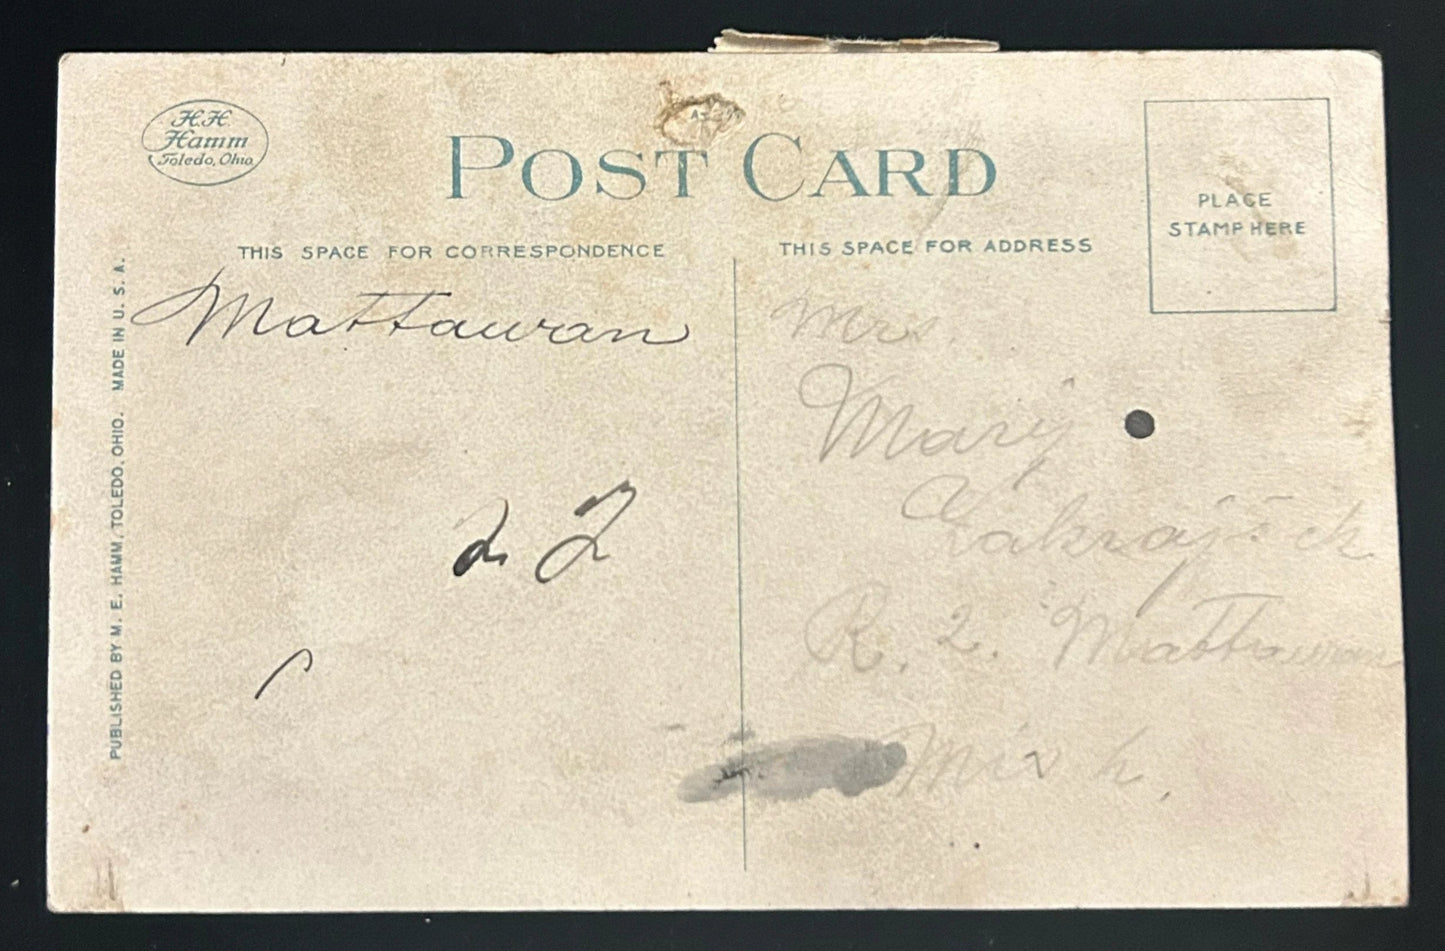 H.H.
Hamm
Toledo, Ohio
POST CARD
PLACE
STAMP HERE
THIS SPACE FOR CORRESPONDENCE
THIS SPACE FOR ADDRESS
PUBLISHED BY M. E. HAMM, TOLEDO, OHIO. MADE IN U. S. A.
Mattawan
Mrs.
Mary
Zakrajšek
R. 2. Mattawan
Mich.